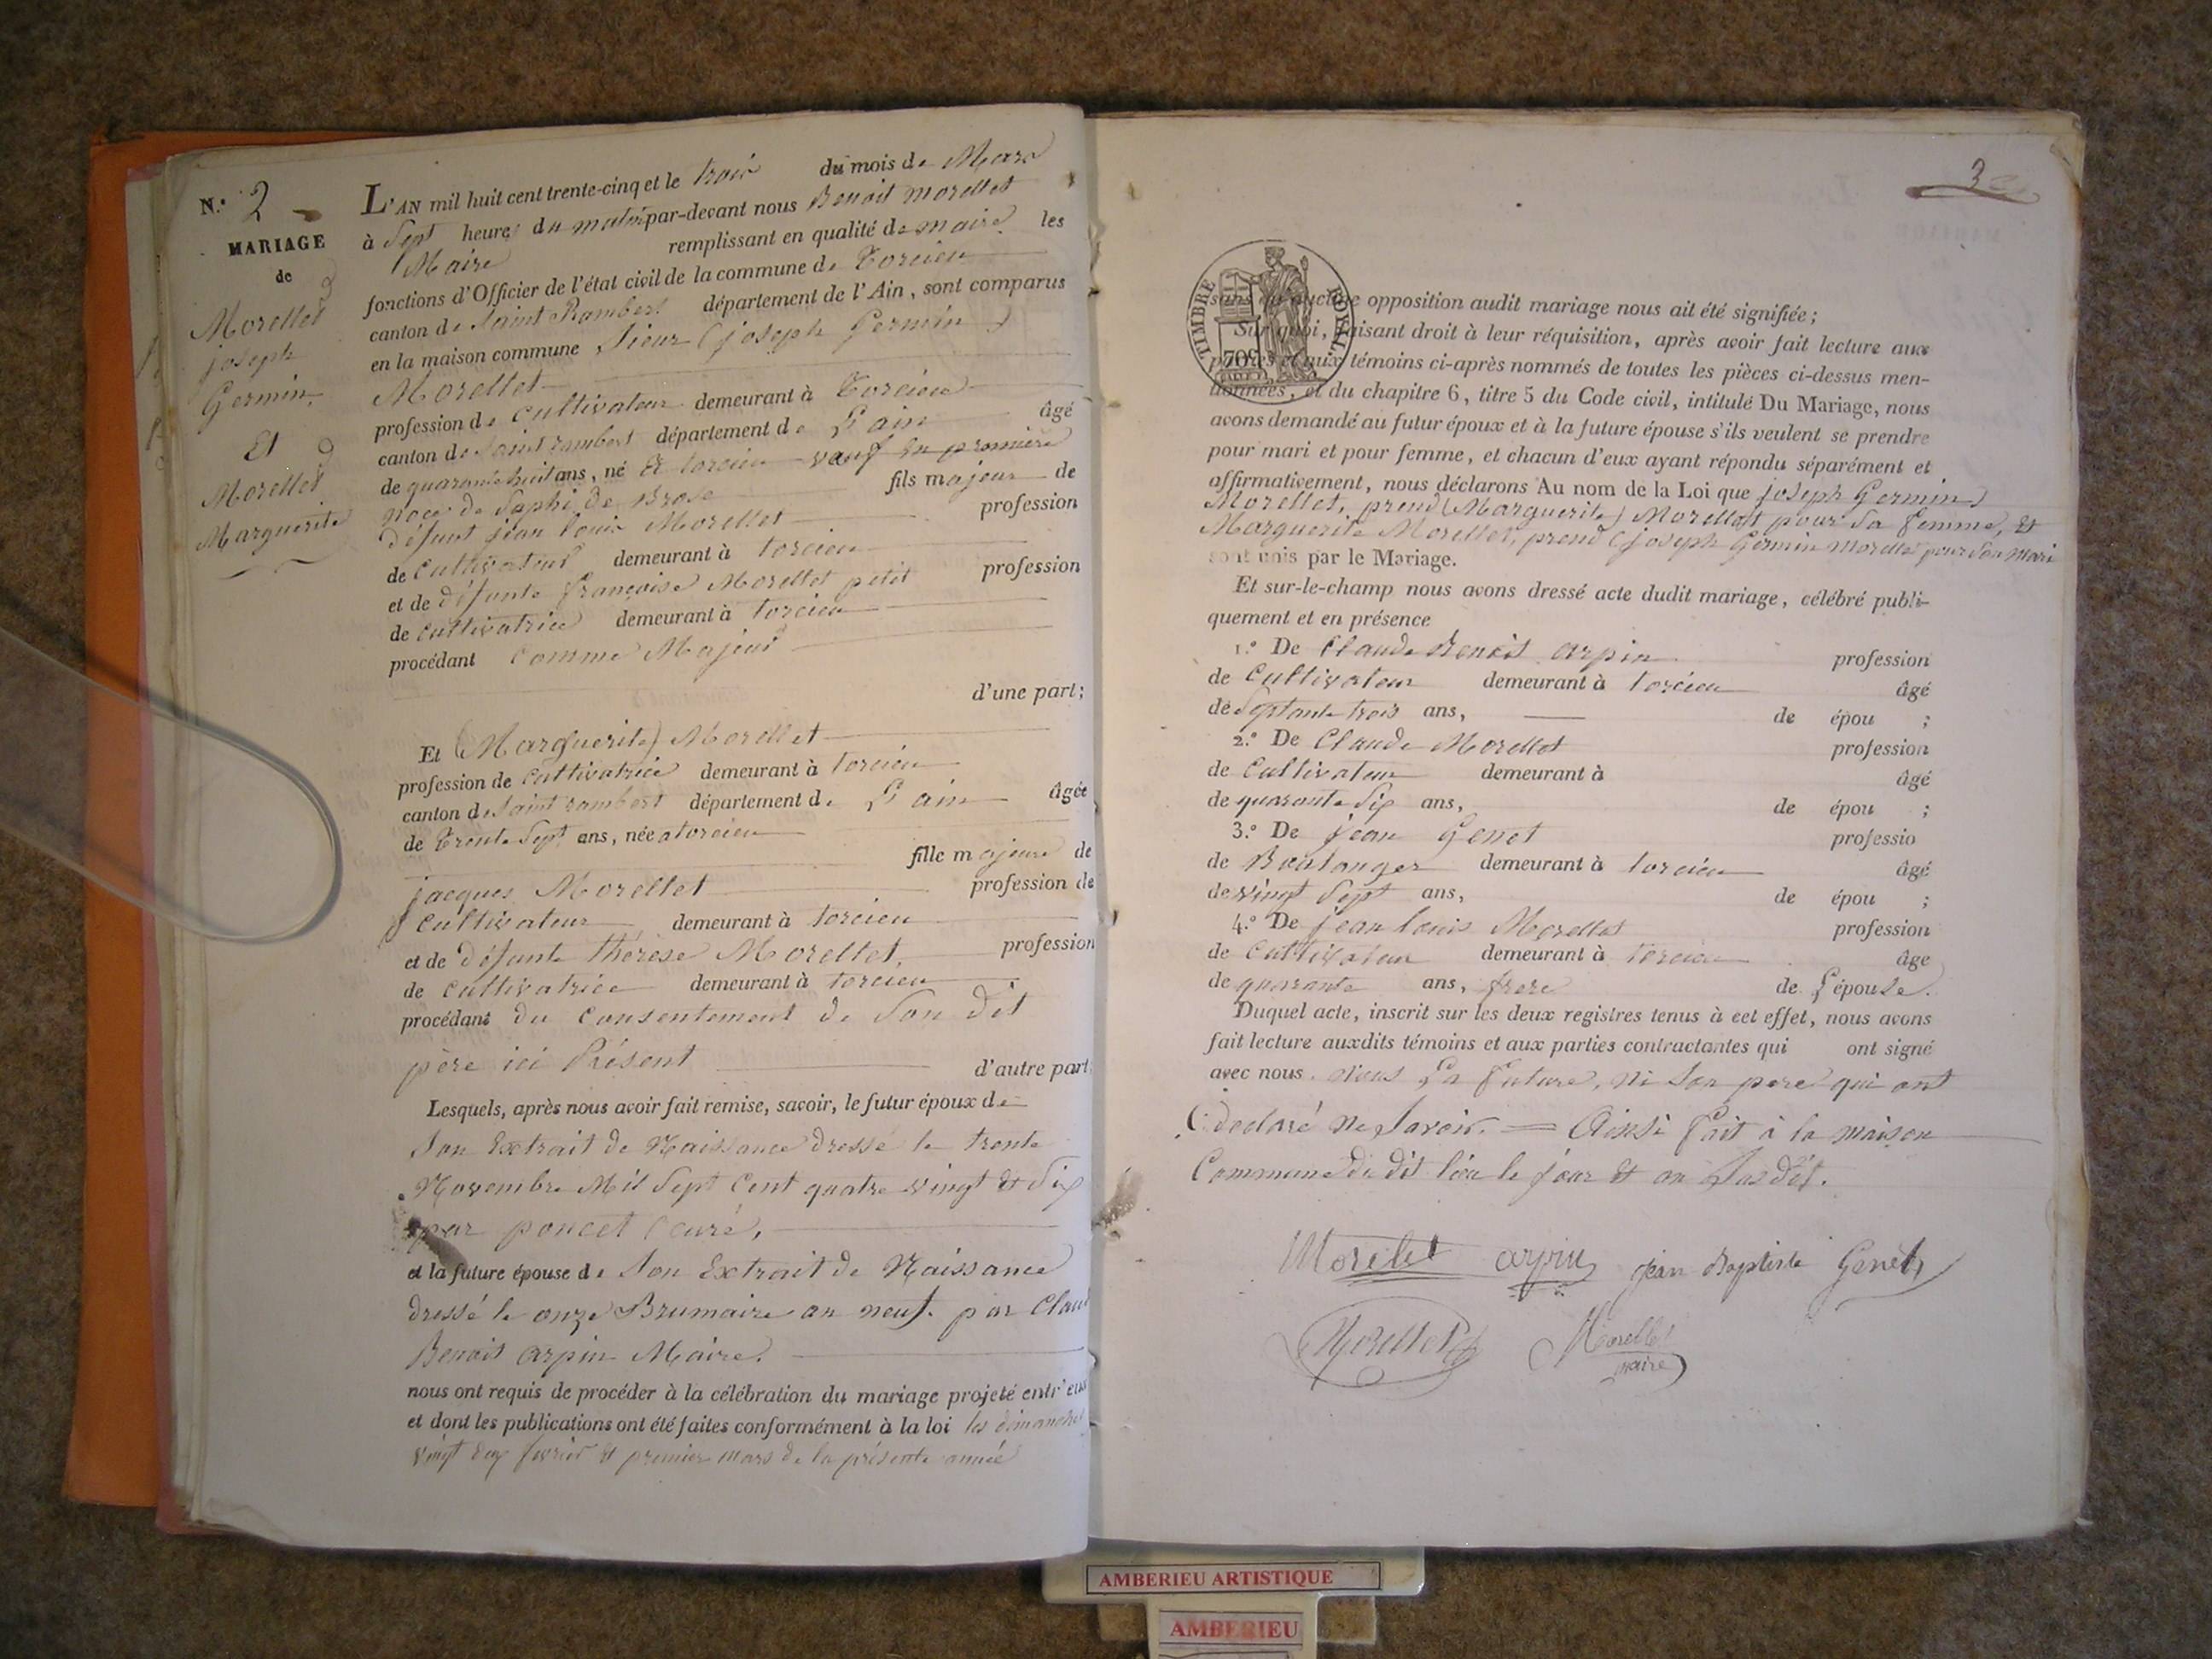 N.º 2
MARIAGE
de
Morellet
joseph
Germin.
Et
Morellet
Marguerite
L'AN mil huit cent trente-cinq et le trois du mois de Mars
à Sept heures du matin par-devant nous Benoit Morellet
Maire remplissant en qualité de maire les
fonctions d'Officier de l'état civil de la commune de Torcieu
canton de Saint Rambert département de l'Ain, sont comparus
en la maison commune, Sieur (joseph Germin)
Morellet
profession de cultivateur demeurant à Torcieu
canton de Saint rambert département de L'ain âgé
de quarante huit ans, né à torcieu veuf en première
noce de Saphi de Brose fils majeur de
défunt jean louis Morellet profession
de Cultivateur demeurant à torcieu
et de défunte françoise Morellet petit profession
de cultivatrice demeurant à torcieu
procédant comme Majeur
d'une part;
Et (Marguerite) Morellet
profession de cultivatrice demeurant à torcieu
canton de Saint rambert département de L'ain âgée
de trente Sept ans, née a torcieu
fille majeure de
jacques Morellet profession de
cultivateur demeurant à torcieu
et de défunte thérèse Morellet, profession
de cultivatrice demeurant à torcieu
procédant du consentement de Son dit
père ici Présent d'autre part.
Lesquels, après nous avoir fait remise, savoir, le futur époux de
Son Extrait de Naissance dressé le trente
Novembre Mil Sept Cent quatre vingt et Six
par poncet curé,
et la future épouse de Son Extrait de Naissance
dressé le onze Brumaire an neuf. par Claud
Benoit arpin Maire.
nous ont requis de procéder à la célébration du mariage projeté entr'eux
et dont les publications ont été faites conformément à la loi les dimanches
vingt deux février et premier mars de la présente année
3
TIMBRE ROYAL
70c
sans qu'aucune opposition audit mariage nous ait été signifiée;
Sur quoi, faisant droit à leur réquisition, après avoir fait lecture aux
parties et aux témoins ci-après nommés de toutes les pièces ci-dessus men-
tionnées, et du chapitre 6, titre 5 du Code civil, intitulé Du Mariage, nous
avons demandé au futur époux et à la future épouse s'ils veulent se prendre
pour mari et pour femme, et chacun d'eux ayant répondu séparément et
affirmativement, nous déclarons Au nom de la Loi que joseph Germin
Morellet, prend (Marguerite) Morellet pour Sa femme, et
Marguerite Morellet, prend (joseph Germin Morellet pour Son mari
sont unis par le Mariage.
Et sur-le-champ nous avons dressé acte dudit mariage, célébré publi-
quement et en présence
1.º De Claude Benoit arpin profession
de Cultivateur demeurant à torcieu âgé
de Septante trois ans, de épou ;
2.º De Claude Morellet profession
de Cultivateur demeurant à âgé
de quarante Six ans, de épou ;
3.º De jean Genet professio
de Boulanger demeurant à torcieu âgé
de vingt Sept ans, de épou ;
4.º De jean louis Morellet profession
de Cultivateur demeurant à torcieu âge
de quarante ans, frere de L'épouse.
Duquel acte, inscrit sur les deux registres tenus à cet effet, nous avons
fait lecture auxdits témoins et aux parties contractantes qui ont signé
avec nous. La future, ni Son pere qui ont
déclaré ne Savoir. = Ainsi fait à la maison
Commune du dit lieu le jour et an Susdit.
Morelet arpin jean Baptiste Genet
Morellet Morellet
maire
AMBERIEU ARTISTIQUE
AMBERIEU